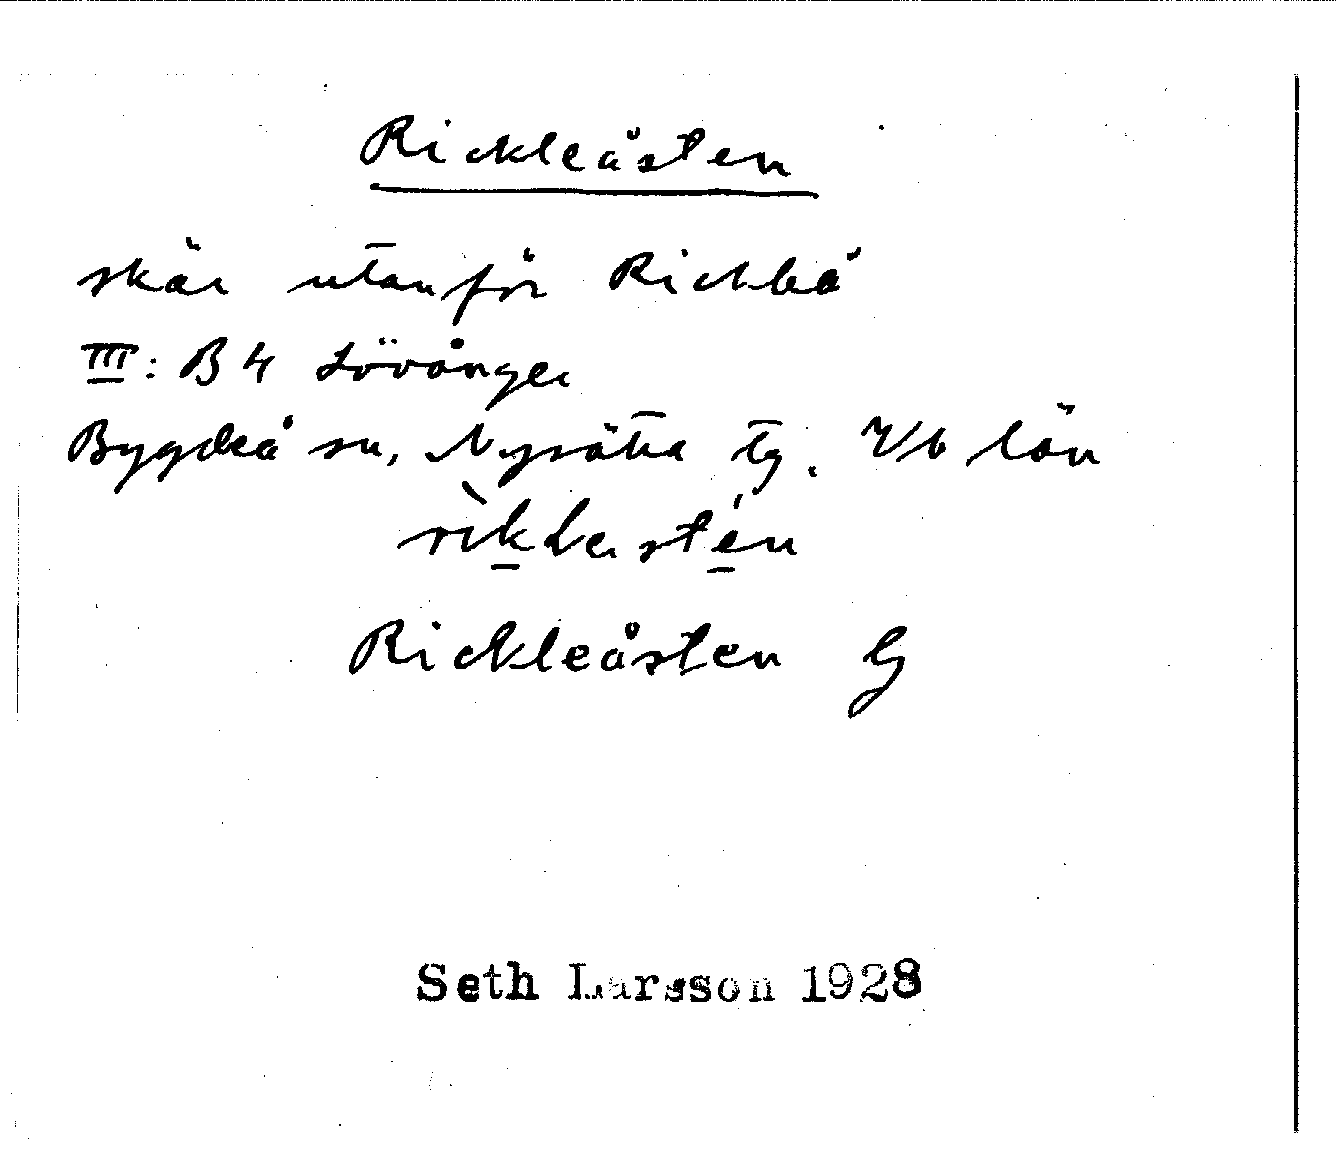 Rickleåsten
skär utanför Rickleå
III: B4 Lövånger
Bygdeå sn, Nysätra tg. Vb län
Rickleåsten G
Seth Larsson 1928